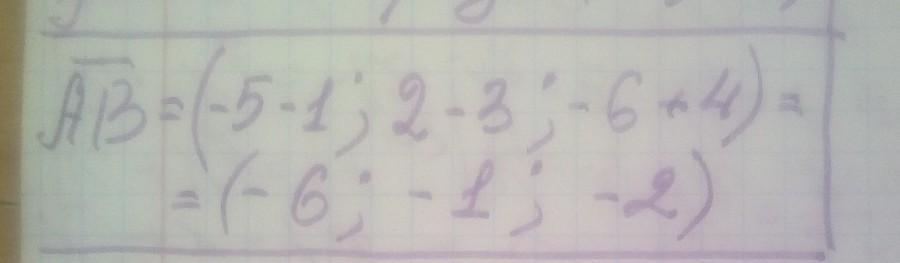 A̅B̅ = (-5-1; 2-3; -6+4) =
= (-6; -1; -2)